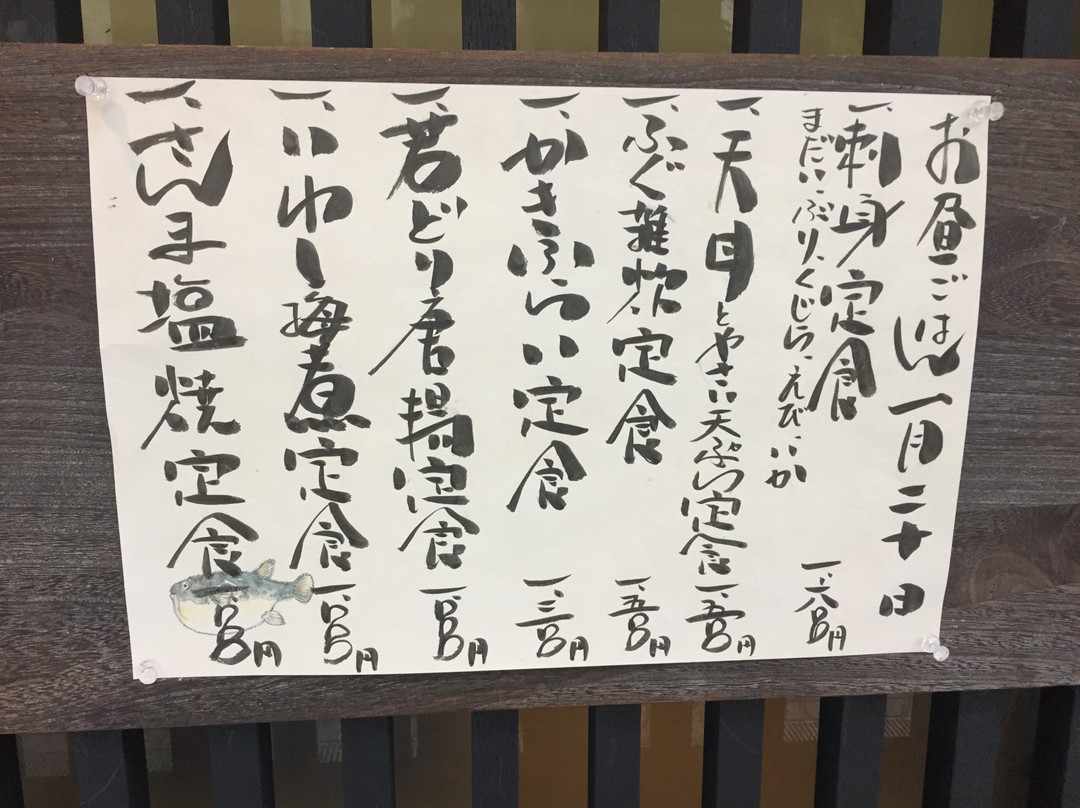 お昼ごはん 一月二十日
一、刺身定食 一、六〇〇円
まだい、ぶり、くじら、えび、いか
一、とやさい天ぷら定食 一、五〇〇円
一、ふぐ雑炊定食 一、五〇〇円
一、かきふらい定食 一、三〇〇円
一、若どり唐揚定食 一、〇〇〇円
一、いわし梅煮定食 一、〇〇〇円
一、さんま塩焼定食 一、〇〇〇円